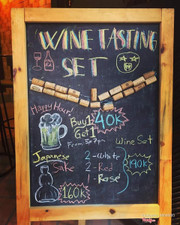 WINE TASTING
SET
Happy Hour!
Buy 1
Get 1
40K
Wine Set
Japanese
Sake
160K
2-White
2-Red
1-Rosé
190K